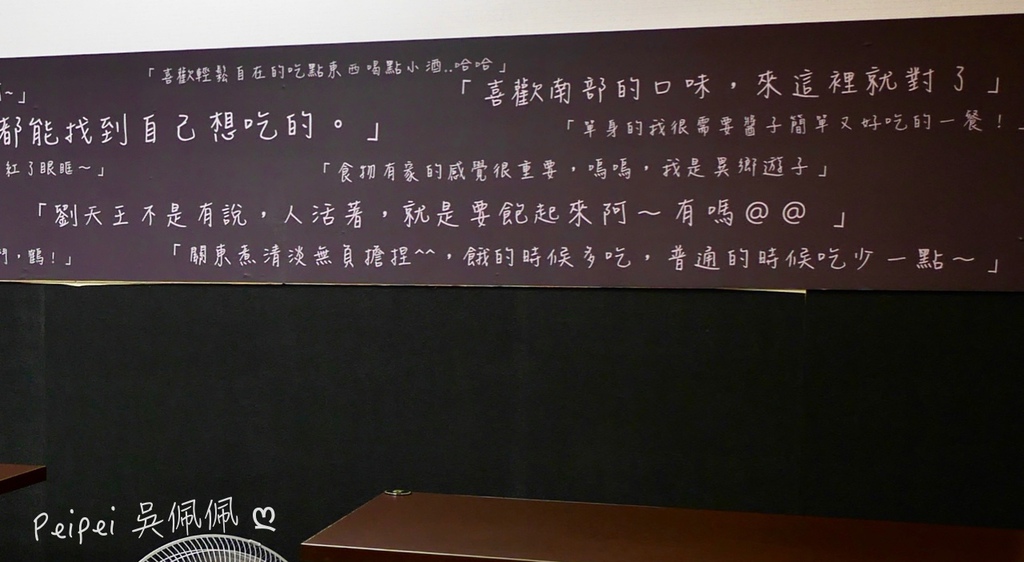 「喜歡輕鬆自在的吃點東西喝點小酒..哈哈」
～」
「喜歡南部的口味，來這裡就對了」
都能找到自己想吃的。」
「單身的我很需要醬子簡單又好吃的一餐！」
紅了眼眶～」
「食物有家的感覺很重要，嗚嗚，我是異鄉遊子」
「劉天王不是有說，人活著，就是要飽起來阿～有嗎@@ 」
鶴！」
「關東煮清淡無負擔捏^^，餓的時候多吃，普通的時候吃少一點～」
Peipei 吳佩佩 ღ